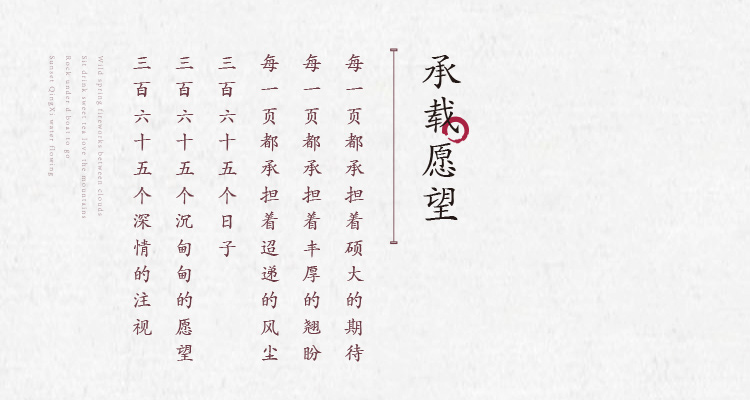 承载愿望
每一页都承担着硕大的期待
每一页都承担着丰厚的翘盼
每一页都承担着迢递的风尘
三百六十五个日子
三百六十五个沉甸甸的愿望
三百六十五个深情的注视
Wild spring fireworks between clouds
Sit drink sweet tea love the mountains
Rock under d boat to go
Sunset QingXi water flowing